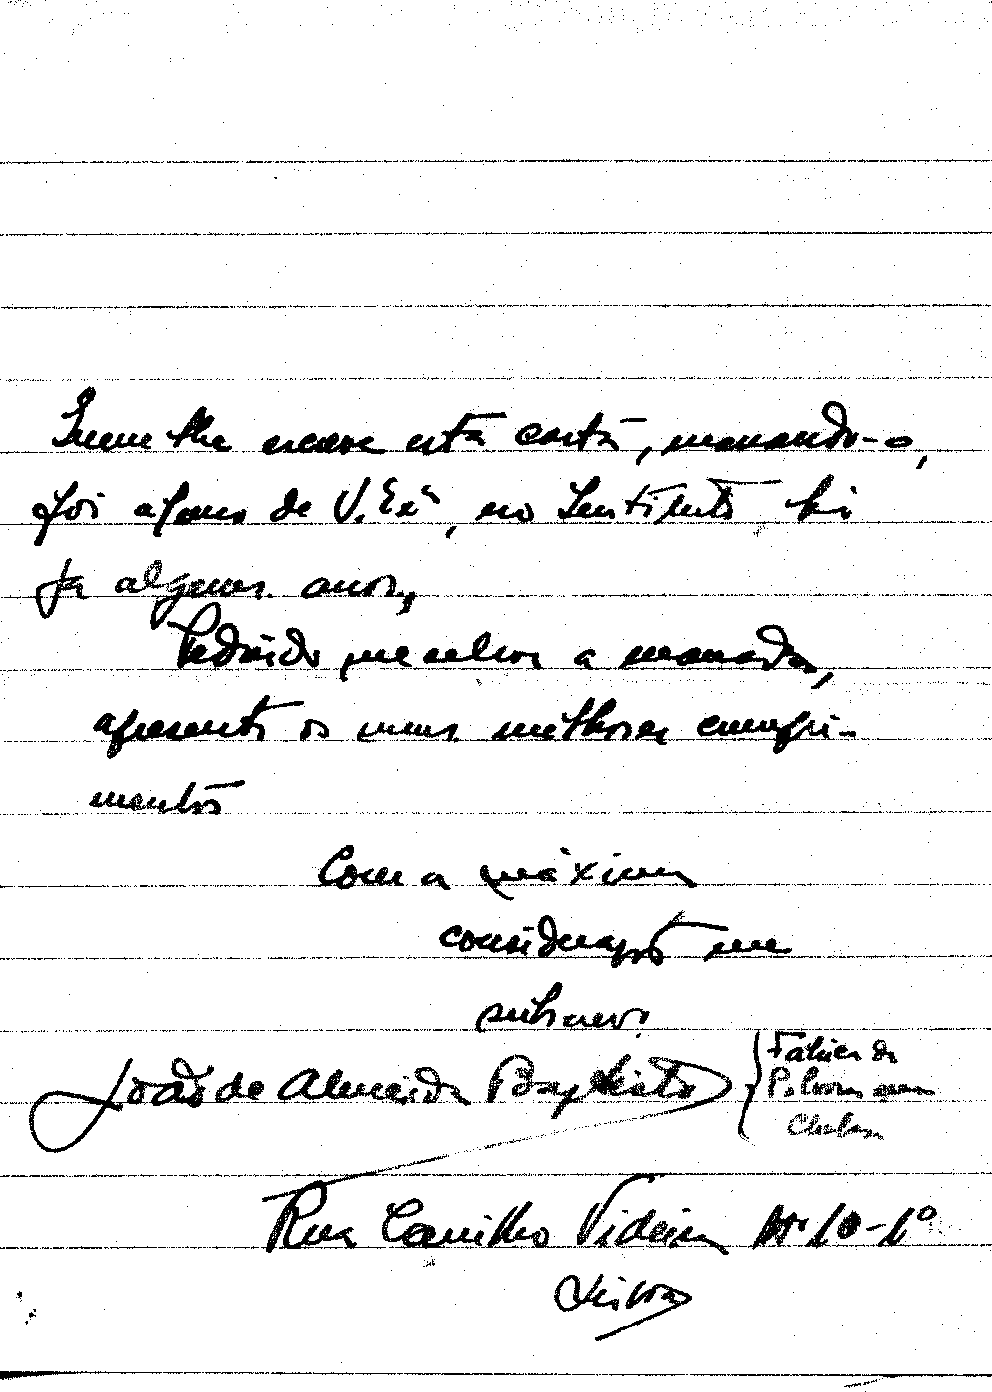 Quem lhe escreve esta carta, maçando-o,
foi aluno de V. Exª, no Instituto, há
já alguns anos,
Pedindo desculpa a maçada,
apresento os meus melhores cumpri-
mentos
Com a máxima
consideração me
subscrevo
João de Almeida Baptista
Fábrica de
Pólvora em
Chelas
Rua Carrilho Videira Nº 10-1º
Lisboa